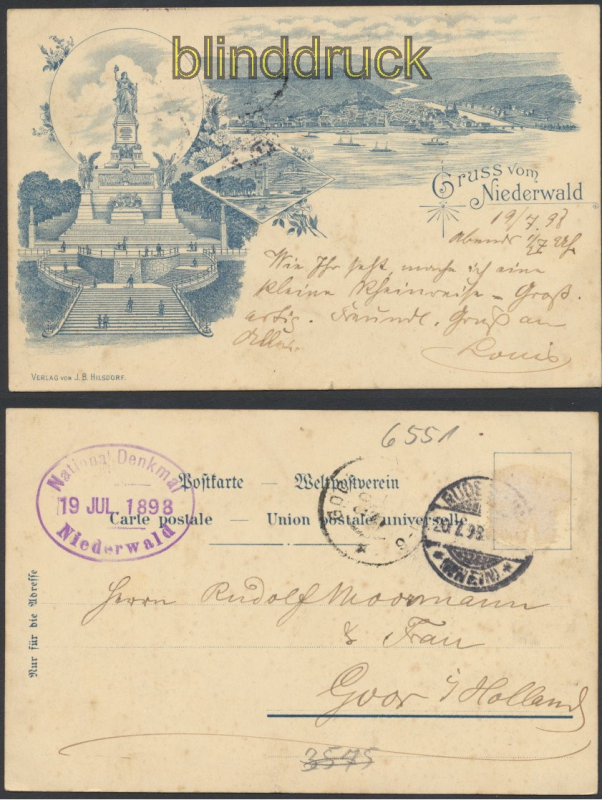 blinddruck
Gruss vom
Niederwald
19/7 98
Abends 1/2 7 Uhr
Wie Ihr seht, mache ich eine
kleine Rheinreise – Groß-
artig. Freundl. Gruß an
Alle.
Louis
VERLAG VON J. B. HILSDORF.
6551
National Denkmal
19 JUL 1898
Niederwald
Postkarte — Weltpostverein
Carte postale — Union postale universelle
(RHEIN)
Nur für die Adresse
Herrn Rudolf Moormann
& Frau
Goor i/Holland
3575